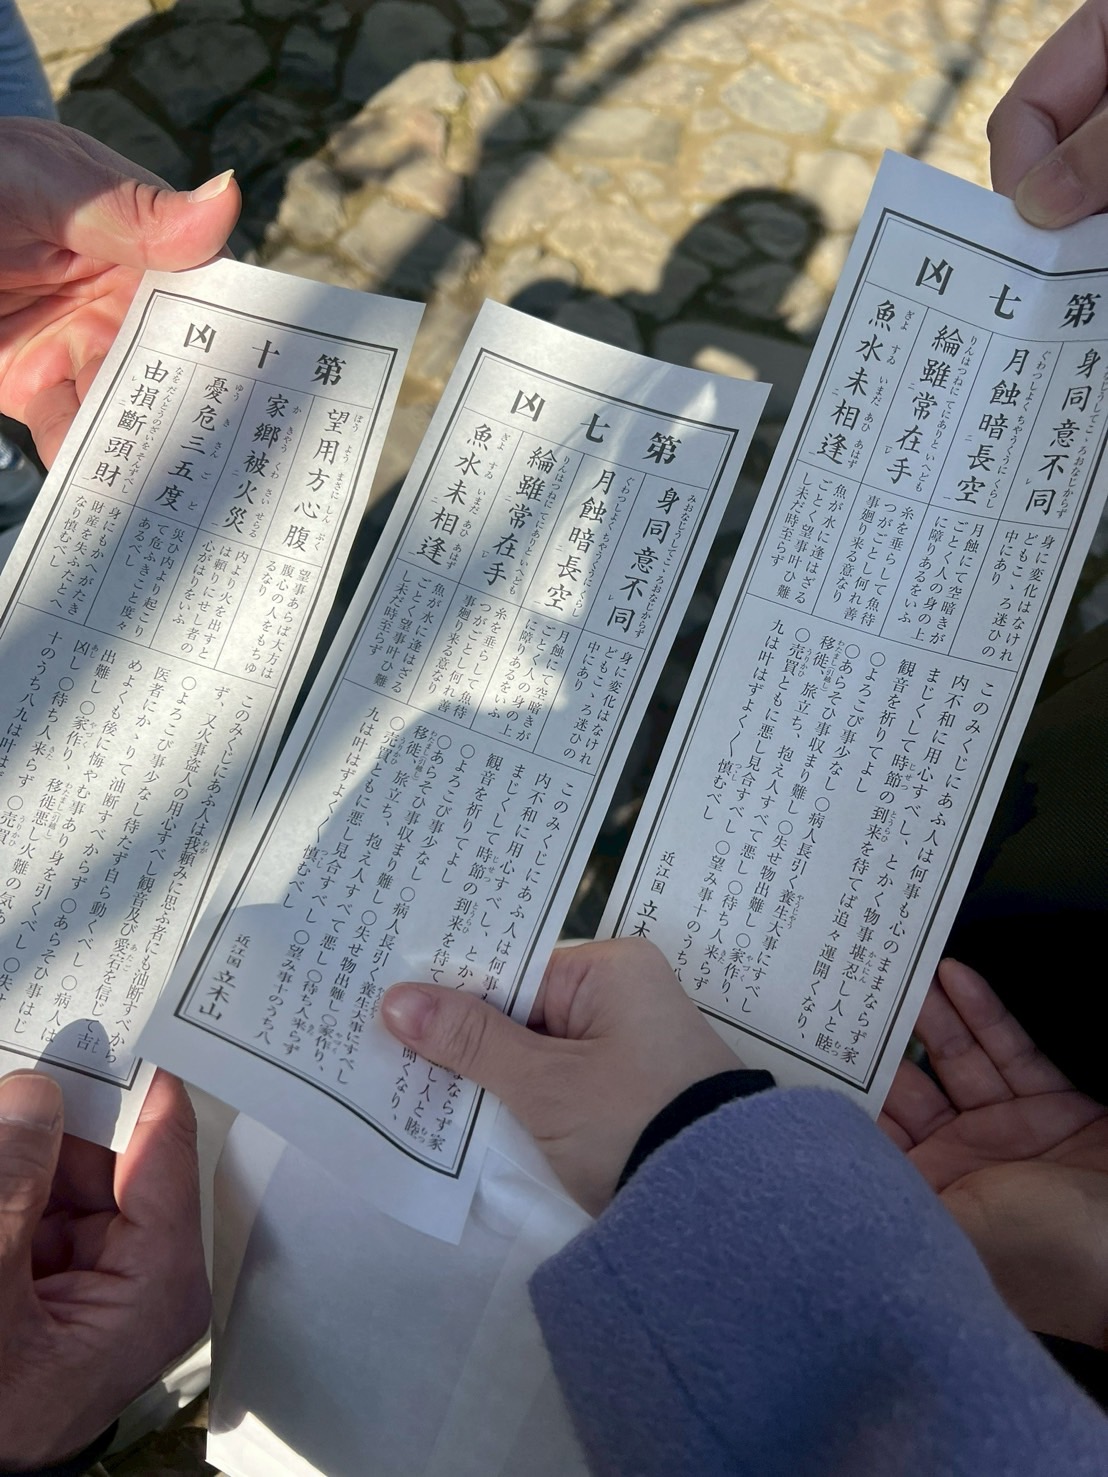 第十凶
望用方心腹
望事あらば大方は
腹心の人をもちゆ
るなり
家郷被火災
内より火を出すと
は頼りにせし者の
心がはりをいふ
憂危三五度
災ひ内より起こり
て危ふきこと度々
あるべし
由損斷頭財
身にもかへがたき
財産を失ふたとへ
なり慎むべし
このみくじにあふ人は我頼みに思ふ者にも油断すべから
ず、又火事盗人の用心すべし観音及び愛宕を信じて吉
〇よろこび事少なし待たず自ら動くべし 〇病人は
医者にかゝりて油断すべからず 〇あらそひ事はじ
めよくも後に悔やむ事あり身を引くべし 〇失せ
出難し 〇家作り、移徙悪し火難の気あ
凶し 〇待ち人来らず 〇売買
十のうち八九は叶はず
第七凶
身同意不同
身に変化はなけれ
どもこゝろ迷ひの
中にあり
月蝕暗長空
月蝕にて空暗きが
ごとく人の身の上
に障りあるをいふ
綸雖常在手
糸を垂らして魚待
つがごとし何れ善
事廻り来る意なり
魚水未相逢
魚が水に逢はざる
ごとく望事叶ひ難
し未だ時至らず
このみくじにあふ人は何事
内不和に用心すべし、とかく
まじくして時節の到来を待て
観音を祈りてよし
〇よろこび事少なし 〇病人長引く養生大事にすべし
〇あらそひ事収まり難し 〇失せ物出難し 〇家作り、
移徙、旅立ち、抱え人すべて悪し 〇待ち人来らず
〇売買ともに悪し見合すべし 〇望み事十のうち八
九は叶はずよくよく慎むべし
近江国 立木山
第七凶
身同意不同
身に変化はなけれ
どもこゝろ迷ひの
中にあり
月蝕暗長空
月蝕にて空暗きが
ごとく人の身の上
に障りあるをいふ
綸雖常在手
糸を垂らして魚待
つがごとし何れ善
事廻り来る意なり
魚水未相逢
魚が水に逢はざる
ごとく望事叶ひ難
し未だ時至らず
このみくじにあふ人は何事も心のままならず家
内不和に用心すべし、とかく物事堪忍し人と睦
まじくして時節の到来を待てば追々運開くなり、
観音を祈りてよし
〇よろこび事少なし 〇病人長引く養生大事にすべし
〇あらそひ事収まり難し 〇失せ物出難し 〇家作り、
移徙、旅立ち、抱え人すべて悪し 〇待ち人来らず
〇売買ともに悪し見合すべし 〇望み事十のうち八
九は叶はずよくよく慎むべし
近江国 立木